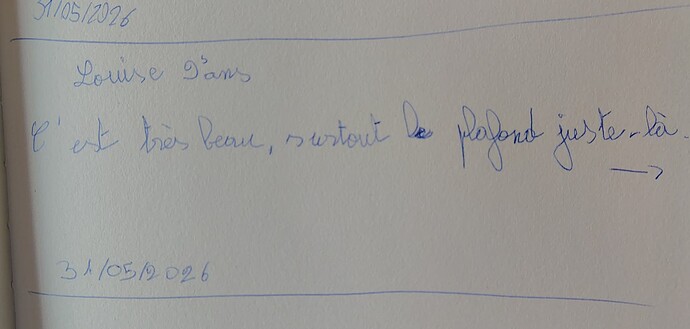 31/05/2026
Louise 9 ans
C'est très beau, surtout le plafond juste-là.
→
31/05/2026